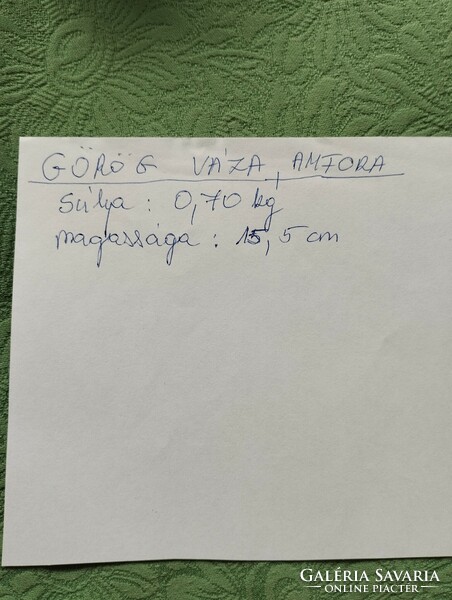 GÖRÖG VÁZA, AMFORA
Súlya : 0,70 kg
magassága : 15,5 cm
GALÉRIA SAVARIA
ONLINE PIACTÉR